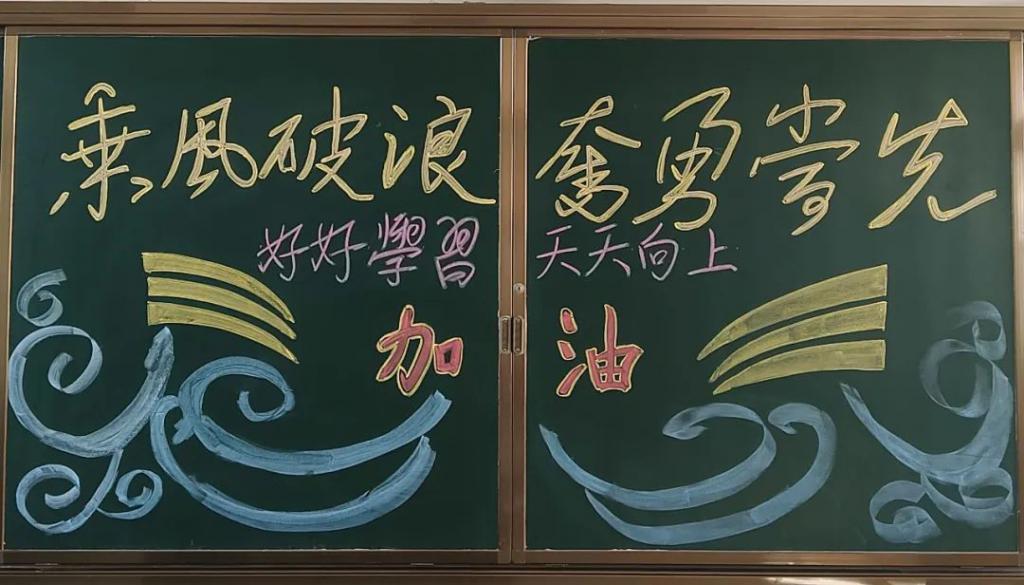 乘风破浪 奋勇当先
好好學習 天天向上
加油